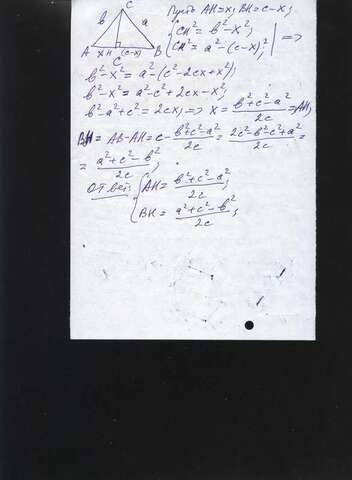 C
Пусть AH=x; BH=c-x;
b a { CH² = b² - x²;
A x H (c-x) B { CH² = a² - (c-x)²; | =>
c
b² - x² = a² - (c² - 2cx + x²);
b² - x² = a² - c² + 2cx - x²;
b² - a² + c² = 2cx; => x = (b² + c² - a²)/2c = AH;
BH = AB - AH = c - (b² + c² - a²)/2c = (2c² - b² - c² + a²)/2c =
= (a² + c² - b²)/2c;
Ответ: { AH = (b² + c² - a²)/2c;
BH = (a² + c² - b²)/2c;